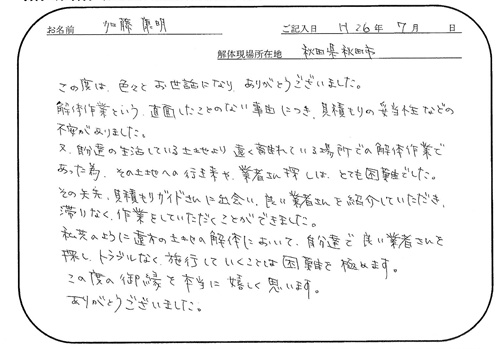 お名前 加藤 康明 ご記入日 H26年7月 日
解体現場所在地 秋田県秋田市
この度は、色々とお世話になり、ありがとうございました。
解体作業という、直面したことのない事由につき、見積もりの妥当性などの
不安がありました。
又、自分達の生活している土地より遠く離れている場所での解体作業で
あった為、その土地への行き来や、業者さん探しは、とても困難でした。
その矢先、見積もりガイドさんに出会い、良い業者さんを紹介していただき、
滞りなく、作業をしていただくことができました。
私共のように遠方の土地の解体において、自分達で良い業者さんを
探し、トラブルなく、施行していくことは困難を極めます。
この度の御縁を本当に嬉しく思います。
ありがとうございました。